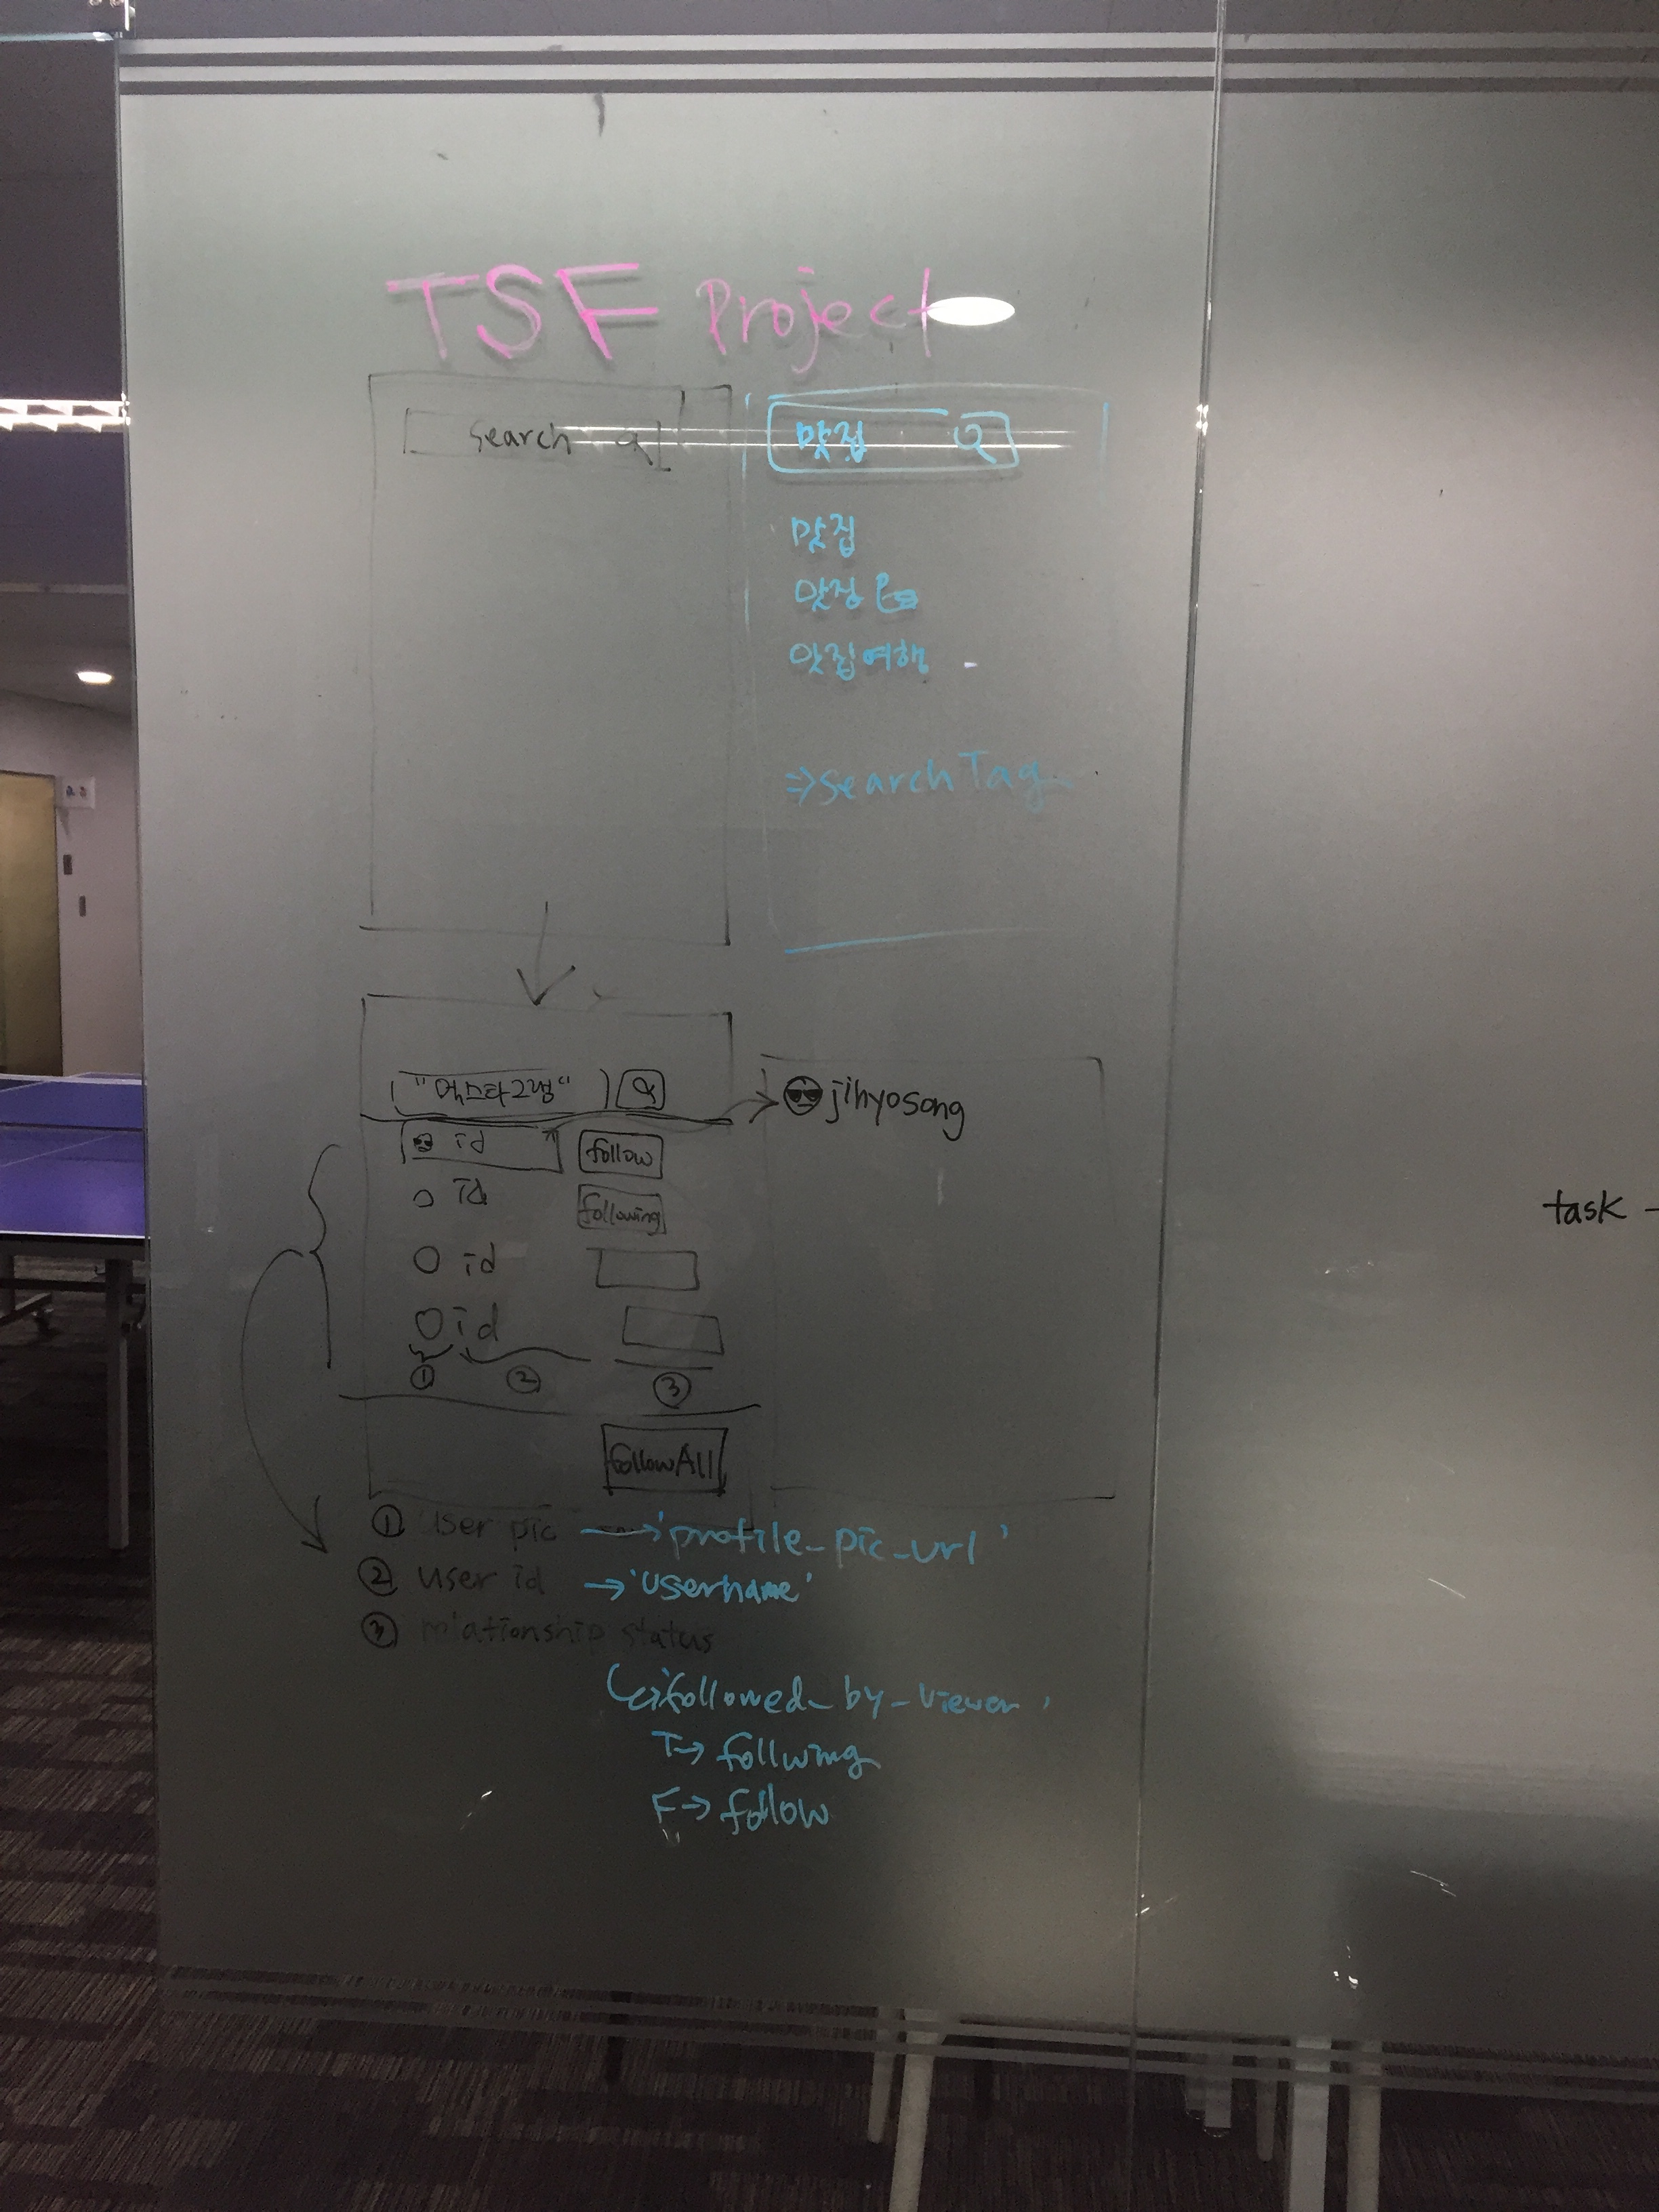 TSF Project
Search
맛집
맛집
맛집
맛집여행
⇒ searchTag
"먹스타그램"
jihyosong
id follow
id following
id
id
① ② ③
followAll
① user pic → 'profile_pic_url'
② user id → 'username'
③ relationship status
↳ 'followed_by_viewer'
T → follwing
F → follow
task -